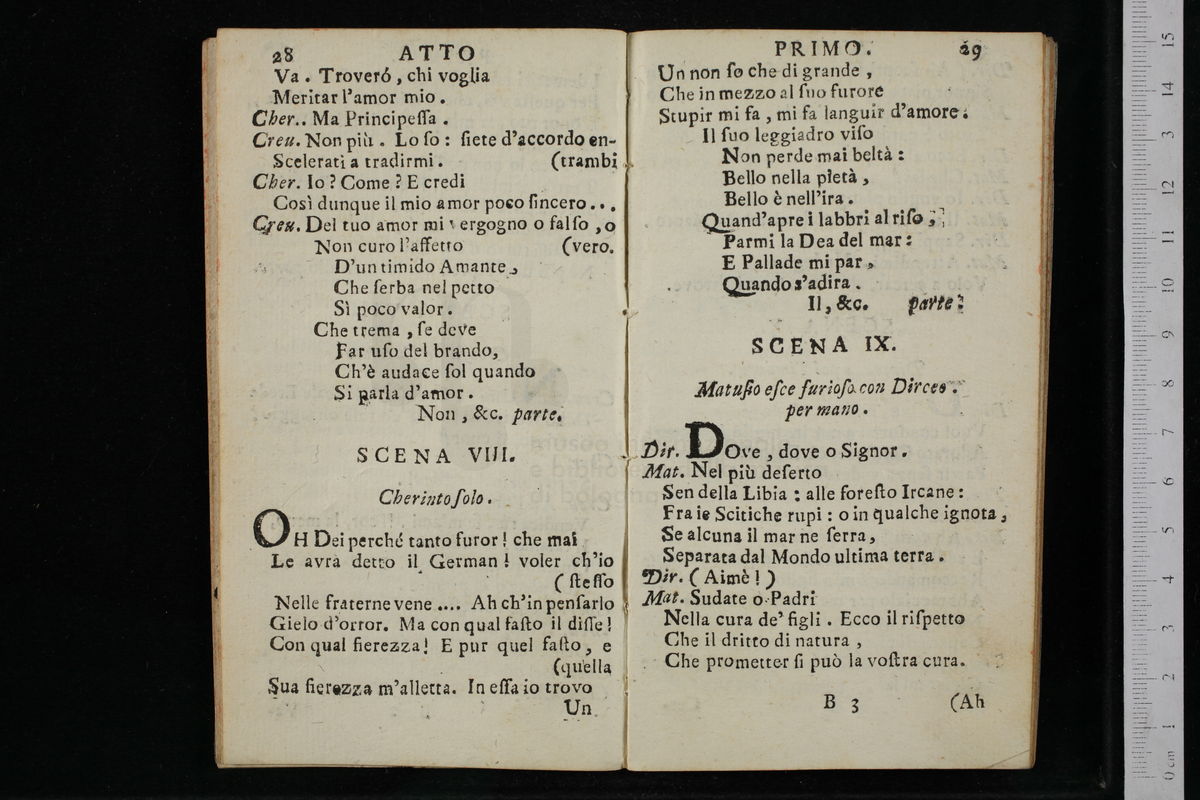 28 ATTO
Va. Troveró, chi voglia
Meritar l'amor mio.
Cher.. Ma Principeſſa.
Creu. Non più. Lo ſo: ſiete d'accordo en-
Scelerati a tradirmi. (trambi
Cher. Io? Come? E credi
Così dunque il mio amor poco ſincero...
Creu. Del tuo amor mi vergogno o falſo, o
Non curo l'affetto (vero.
D'un timido Amante,
Che ſerba nel petto
Sì poco valor.
Che trema, ſe deve
Far uſo del brando,
Ch'è audace ſol quando
Si parla d'amor.
Non, &c. parte.
SCENA VIII.
Cherinto ſolo.
OH Dei perché tanto furor! che mai
Le avrà detto il German! voler ch'io
(ſteſſo
Nelle fraterne vene.... Ah ch'in penſarlo
Gielo d'orror. Ma con qual faſto il diſſe!
Con qual fierezza! E pur quel faſto, e
(quella
Sua fierezza m'alletta. In eſſa io trovo
Un
PRIMO. 29
Un non ſo che di grande,
Che in mezzo al ſuo furore
Stupir mi fa, mi fa languir d'amore.
Il ſuo leggiadro viſo
Non perde mai beltà:
Bello nella pietà,
Bello è nell'ira.
Quand'apre i labbri al riſo,
Parmi la Dea del mar:
E Pallade mi par,
Quando s'adira.
Il, &c. parte.
SCENA IX.
Matuſio eſce furioſo con Dircea
per mano.
Dir. DOve, dove o Signor.
Mat. Nel più deſerto
Sen della Libia: alle foreſto Ircane:
Fra ie Scitiche rupi: o in qualche ignota,
Se alcuna il mar ne ſerra,
Separata dal Mondo ultima terra.
Dir. (Aimè!)
Mat. Sudate o Padri
Nella cura de' figli. Ecco il riſpetto
Che il dritto di natura,
Che prometter ſi può la voſtra cura.
B 3 (Ah